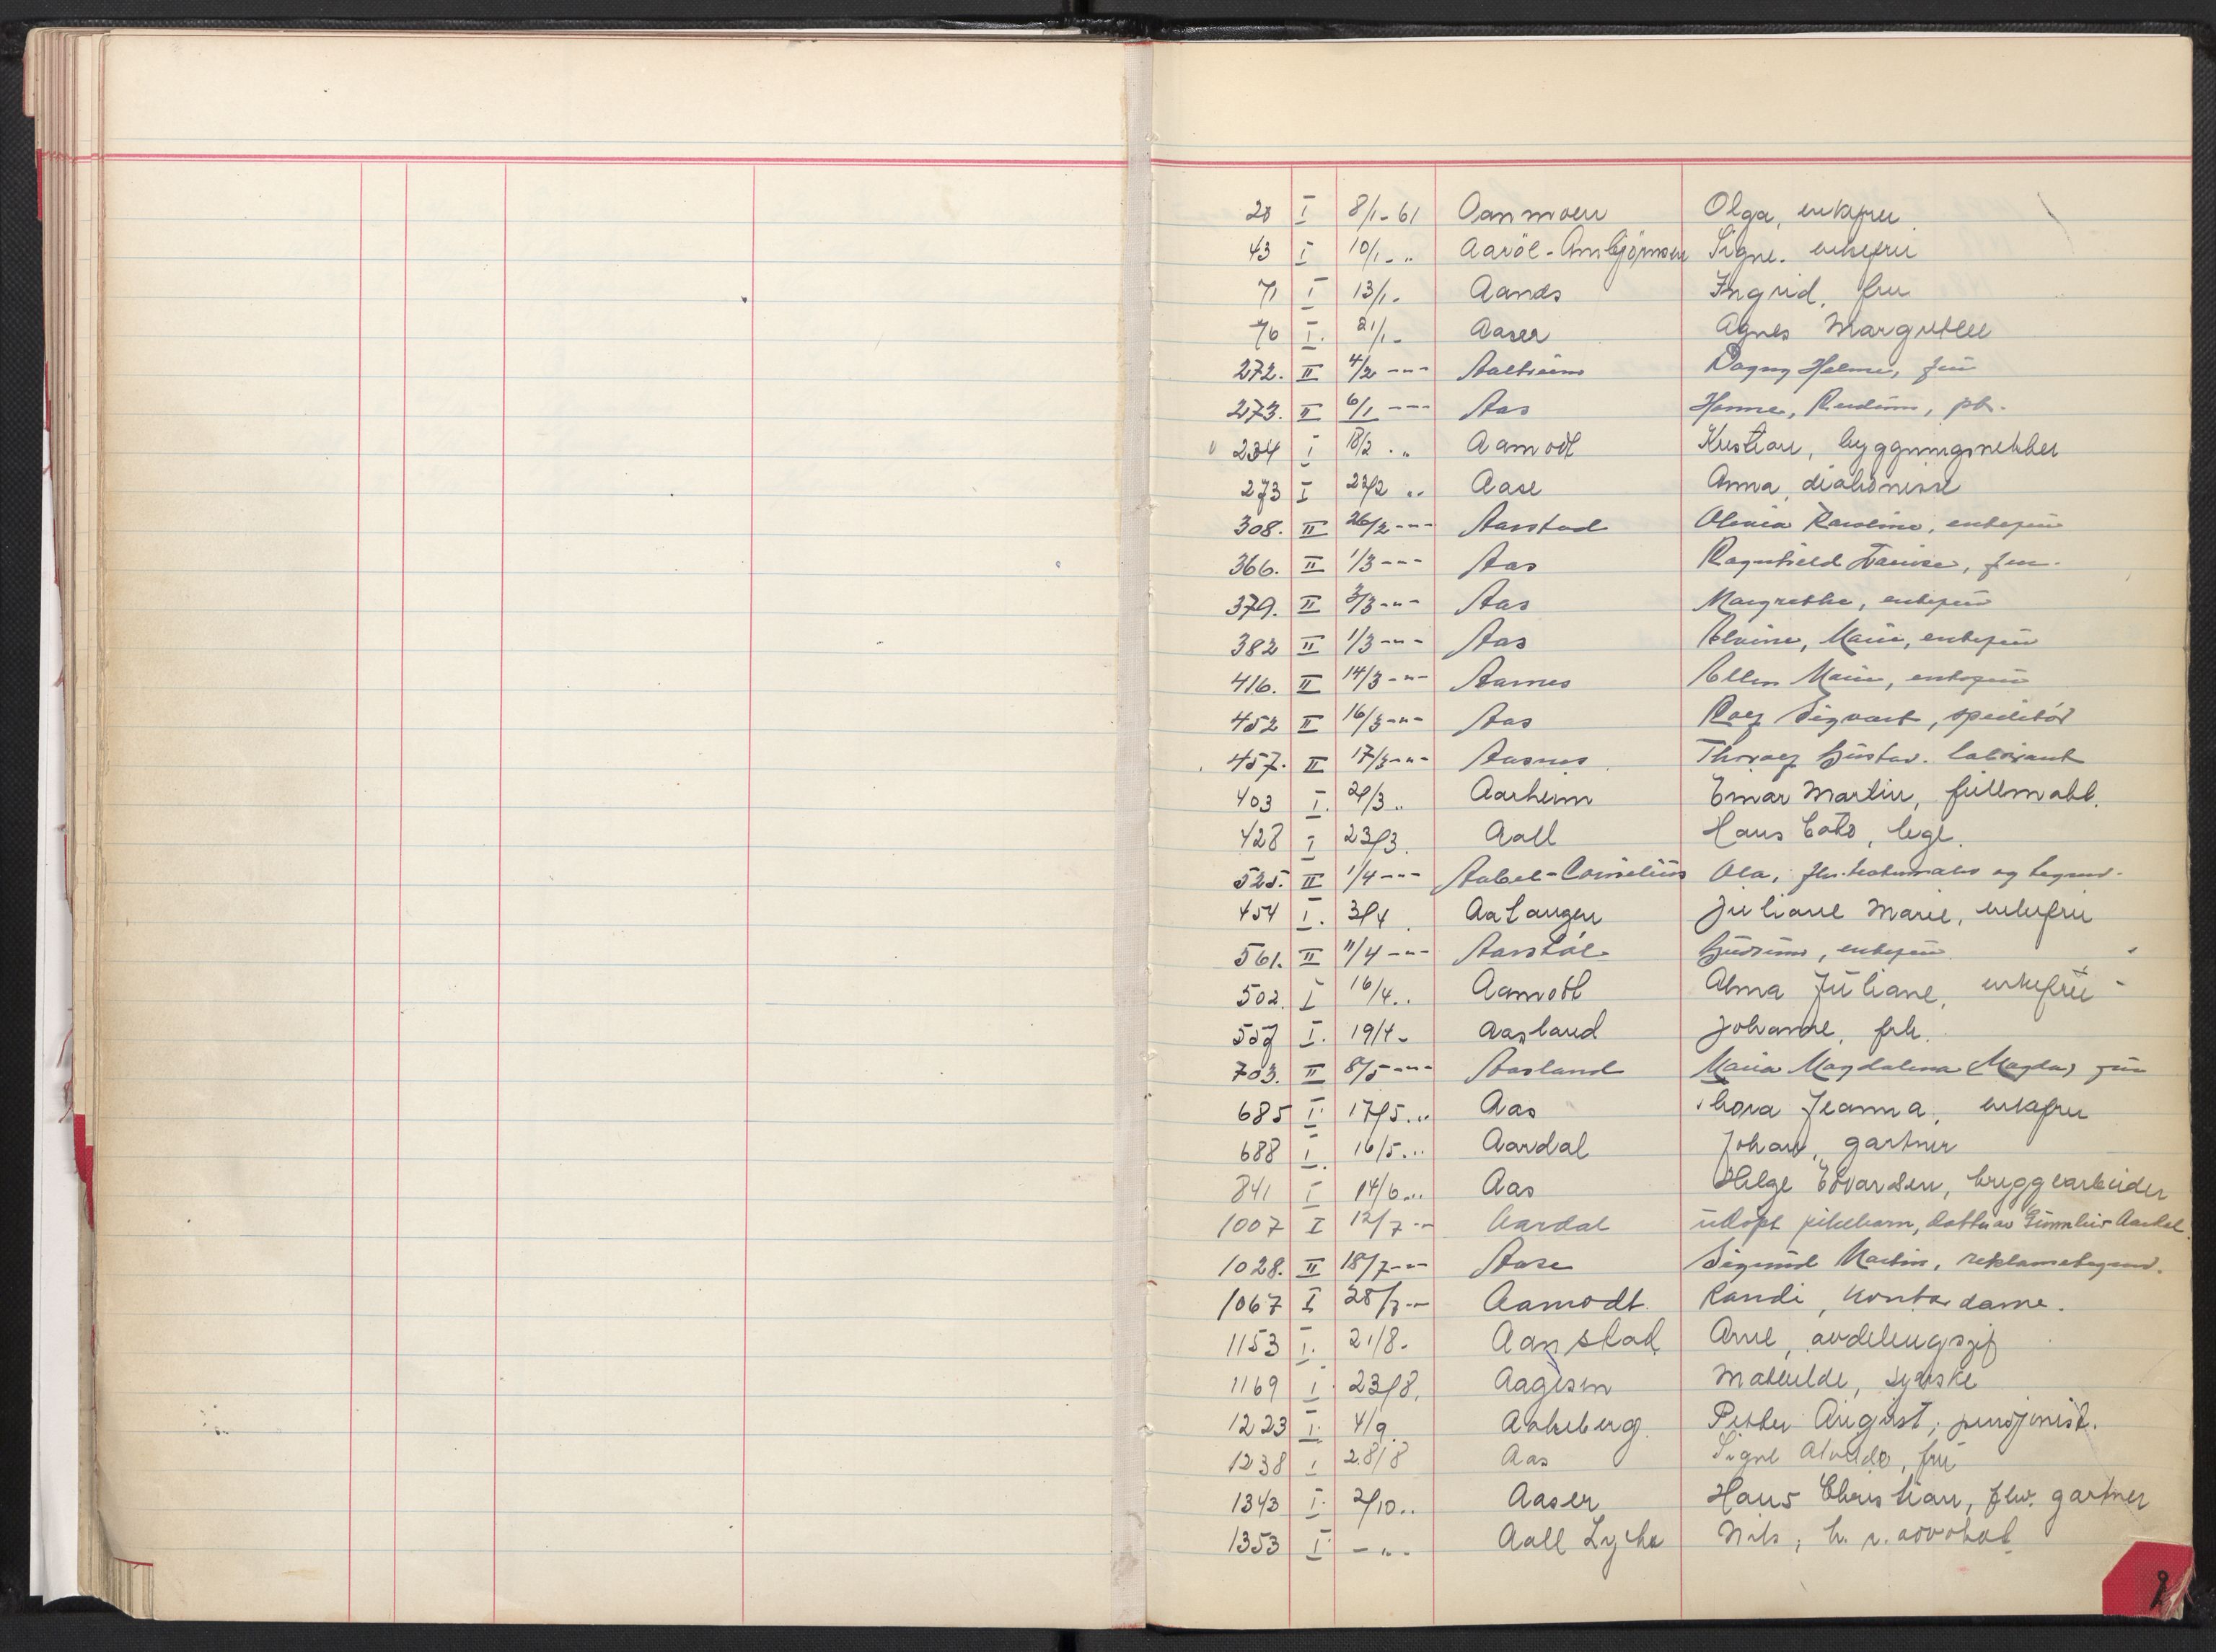 20 I 8/1-61 Aanmoen Olga, enkefru
43 I 10/1 - " Aaröl-Ambjörnsen Signe. enkefru
71 I 13/1- Aands Ingrid, fru
76 I. 21/1- Aaser Agnes Margrethe
272. II 4/2 -"- Aalheim Dagny Helene, fru
273. II 6/1 --- Aas Hanna,
234 I 18/2 . " Aamodt Kristian, bygningssnekker
273 I 22/2 .. Aase Anna, diakonisse
308. II 26/2 -"- Aarstad Karoline, enkefru
366. II 1/3 -"- Aas Ragnhild Lovise, fru.
379. II 3/3 -"- Aas Margrethe, enkefru
382 II 1/3 -"- Aas Elvine, Marie, enkefru
416. II 14/3 -"- Aarnes Ellen Marie, enkefru
452 II 16/3 -"- Aas Rolf Sigvart, speditör
457. II 17/3 -"- Aasnes Thoralf Gustav. laborant
403 I. 21/3 .. Aarheim Einar Martin, fullmakt.
428 I 23/3. Aall Hans Cato, lege.
525. II 1/4 -"- Aabel-Cornelius Ola, flv. og begrav.
454 I. 3/4. Aatangen Juliane Marie, enkefru
561. II 11/4 -"- Aarstöl Gudrun, enkefru
502. I 16/4.. Aamodt Alma Juliane, enkefru
557 I. 19/4- Aasland Johanne, frk.
703. II 8/5 -"- Aasland Maria Magdalena (Magda) fru
685 I. 17/5.. Aas Thora Jeanna, enkefru
688 I. 16/5... Aardal Johan, gartner
841 I 14/6 ... Aas Helge Edvardsen, bryggearbeider
1007 I 12/7 -- Aardal udöpt pikebarn, datter av Gunnhis Aardal.
1028. II 18/7 -"- Aase Sigurd Martin, reklametegner.
1067 I 28/7 -- Aamodt. Randi, kontordame.
1153 I. 21/8. Aanstad Arne, avdelingssjef
1169 I 23/8. Aagesen Mathilde, syerske
1223 I. 4/9. Aakeberg. Petter August, pensjonist.
1238 I 28/8 Aas Signe Alvilde, fru
1343 I. 2/10.. Aaser Hans Christian, flv. gartner
1353 I - " - Aall Lyche Nils, h. r. advokat